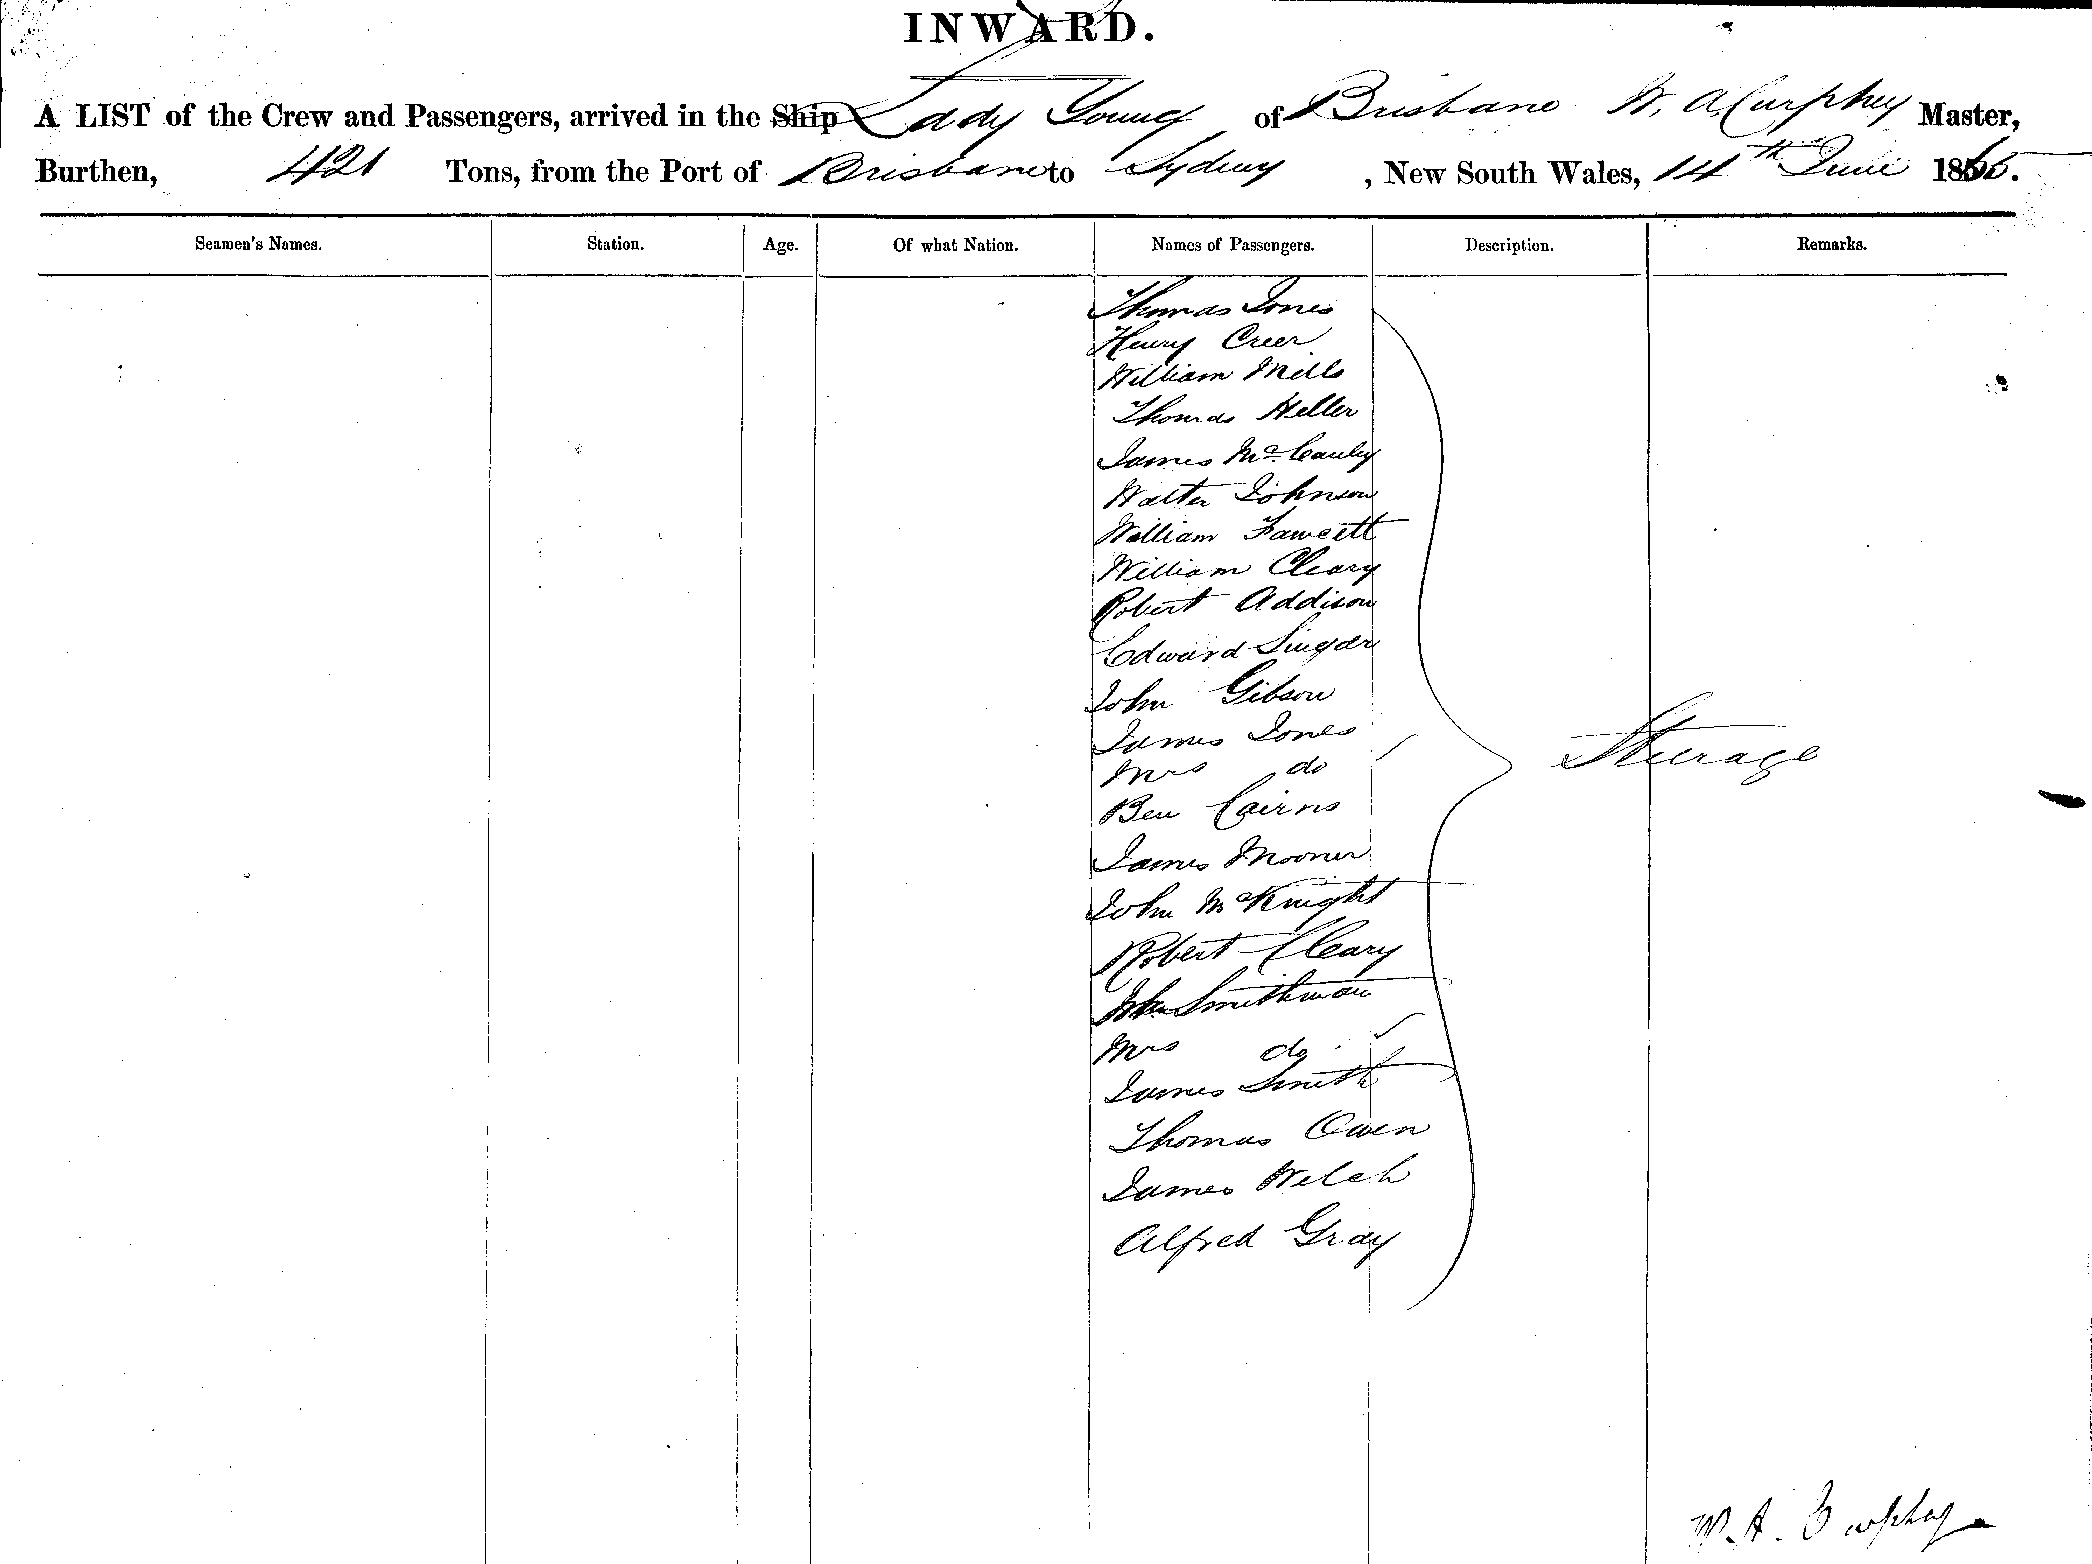 INWARD.
A LIST of the Crew and Passengers, arrived in the Ship Lady Young of Brisbane W. A. Curphey Master,
Burthen, 421 Tons, from the Port of Brisbane to Sydney, New South Wales, 14th June 1865.
Seamen's Names. Station. Age. Of what Nation. Names of Passengers. Description. Remarks.
Thomas Jones
Henry Creer
William Mills
Thomas Heller
James McCauley
Walter Johnson
William Fawcett
William Cleary
Robert Addison
Edward Singar
John Gibson
James Jones
Mrs do
Steerage
Ben Cairns
James Mooner
John McKnight
Robert Cleary
Smithman
Mrs do
James Smith
Thomas Owen
James Welch
Alfred Gray
W. A. Curphey